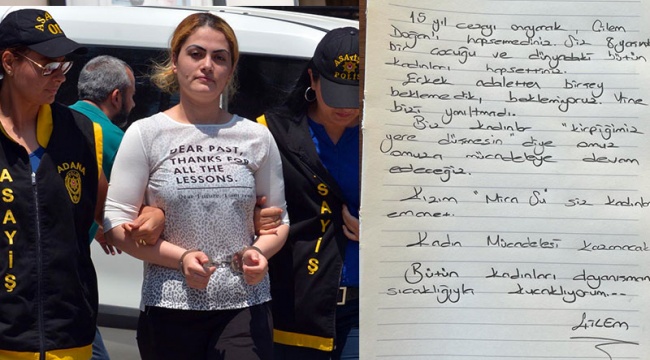 ASAYİŞ
ADANA
ASAYİŞ
POLİS
ASAYİŞ
DEAR PAST,
THANKS FOR
ALL THE
LESSONS.
15 yıl cezayı onayarak, Çilem
Doğan'ı hapsemediniz. Siz 8 yaşında
bir çocuğu ve dünyadaki bütün
kadınları hapsettiniz.
Erkek adaletten birşey
beklemedik, beklemiyoruz. Yine
bizi yanıltmadı.
Biz kadınlar "kirpiğimiz
yere düşmesin" diye omuz
omuza mücadeleye devam
edeceğiz.
Kızım "Mira Su" siz kadınlara
emanet.
Kadın Mücadelesi Kazanacak
Bütün kadınları dayanışmanın
sıcaklığıyla kucaklıyorum...
ÇİLEM